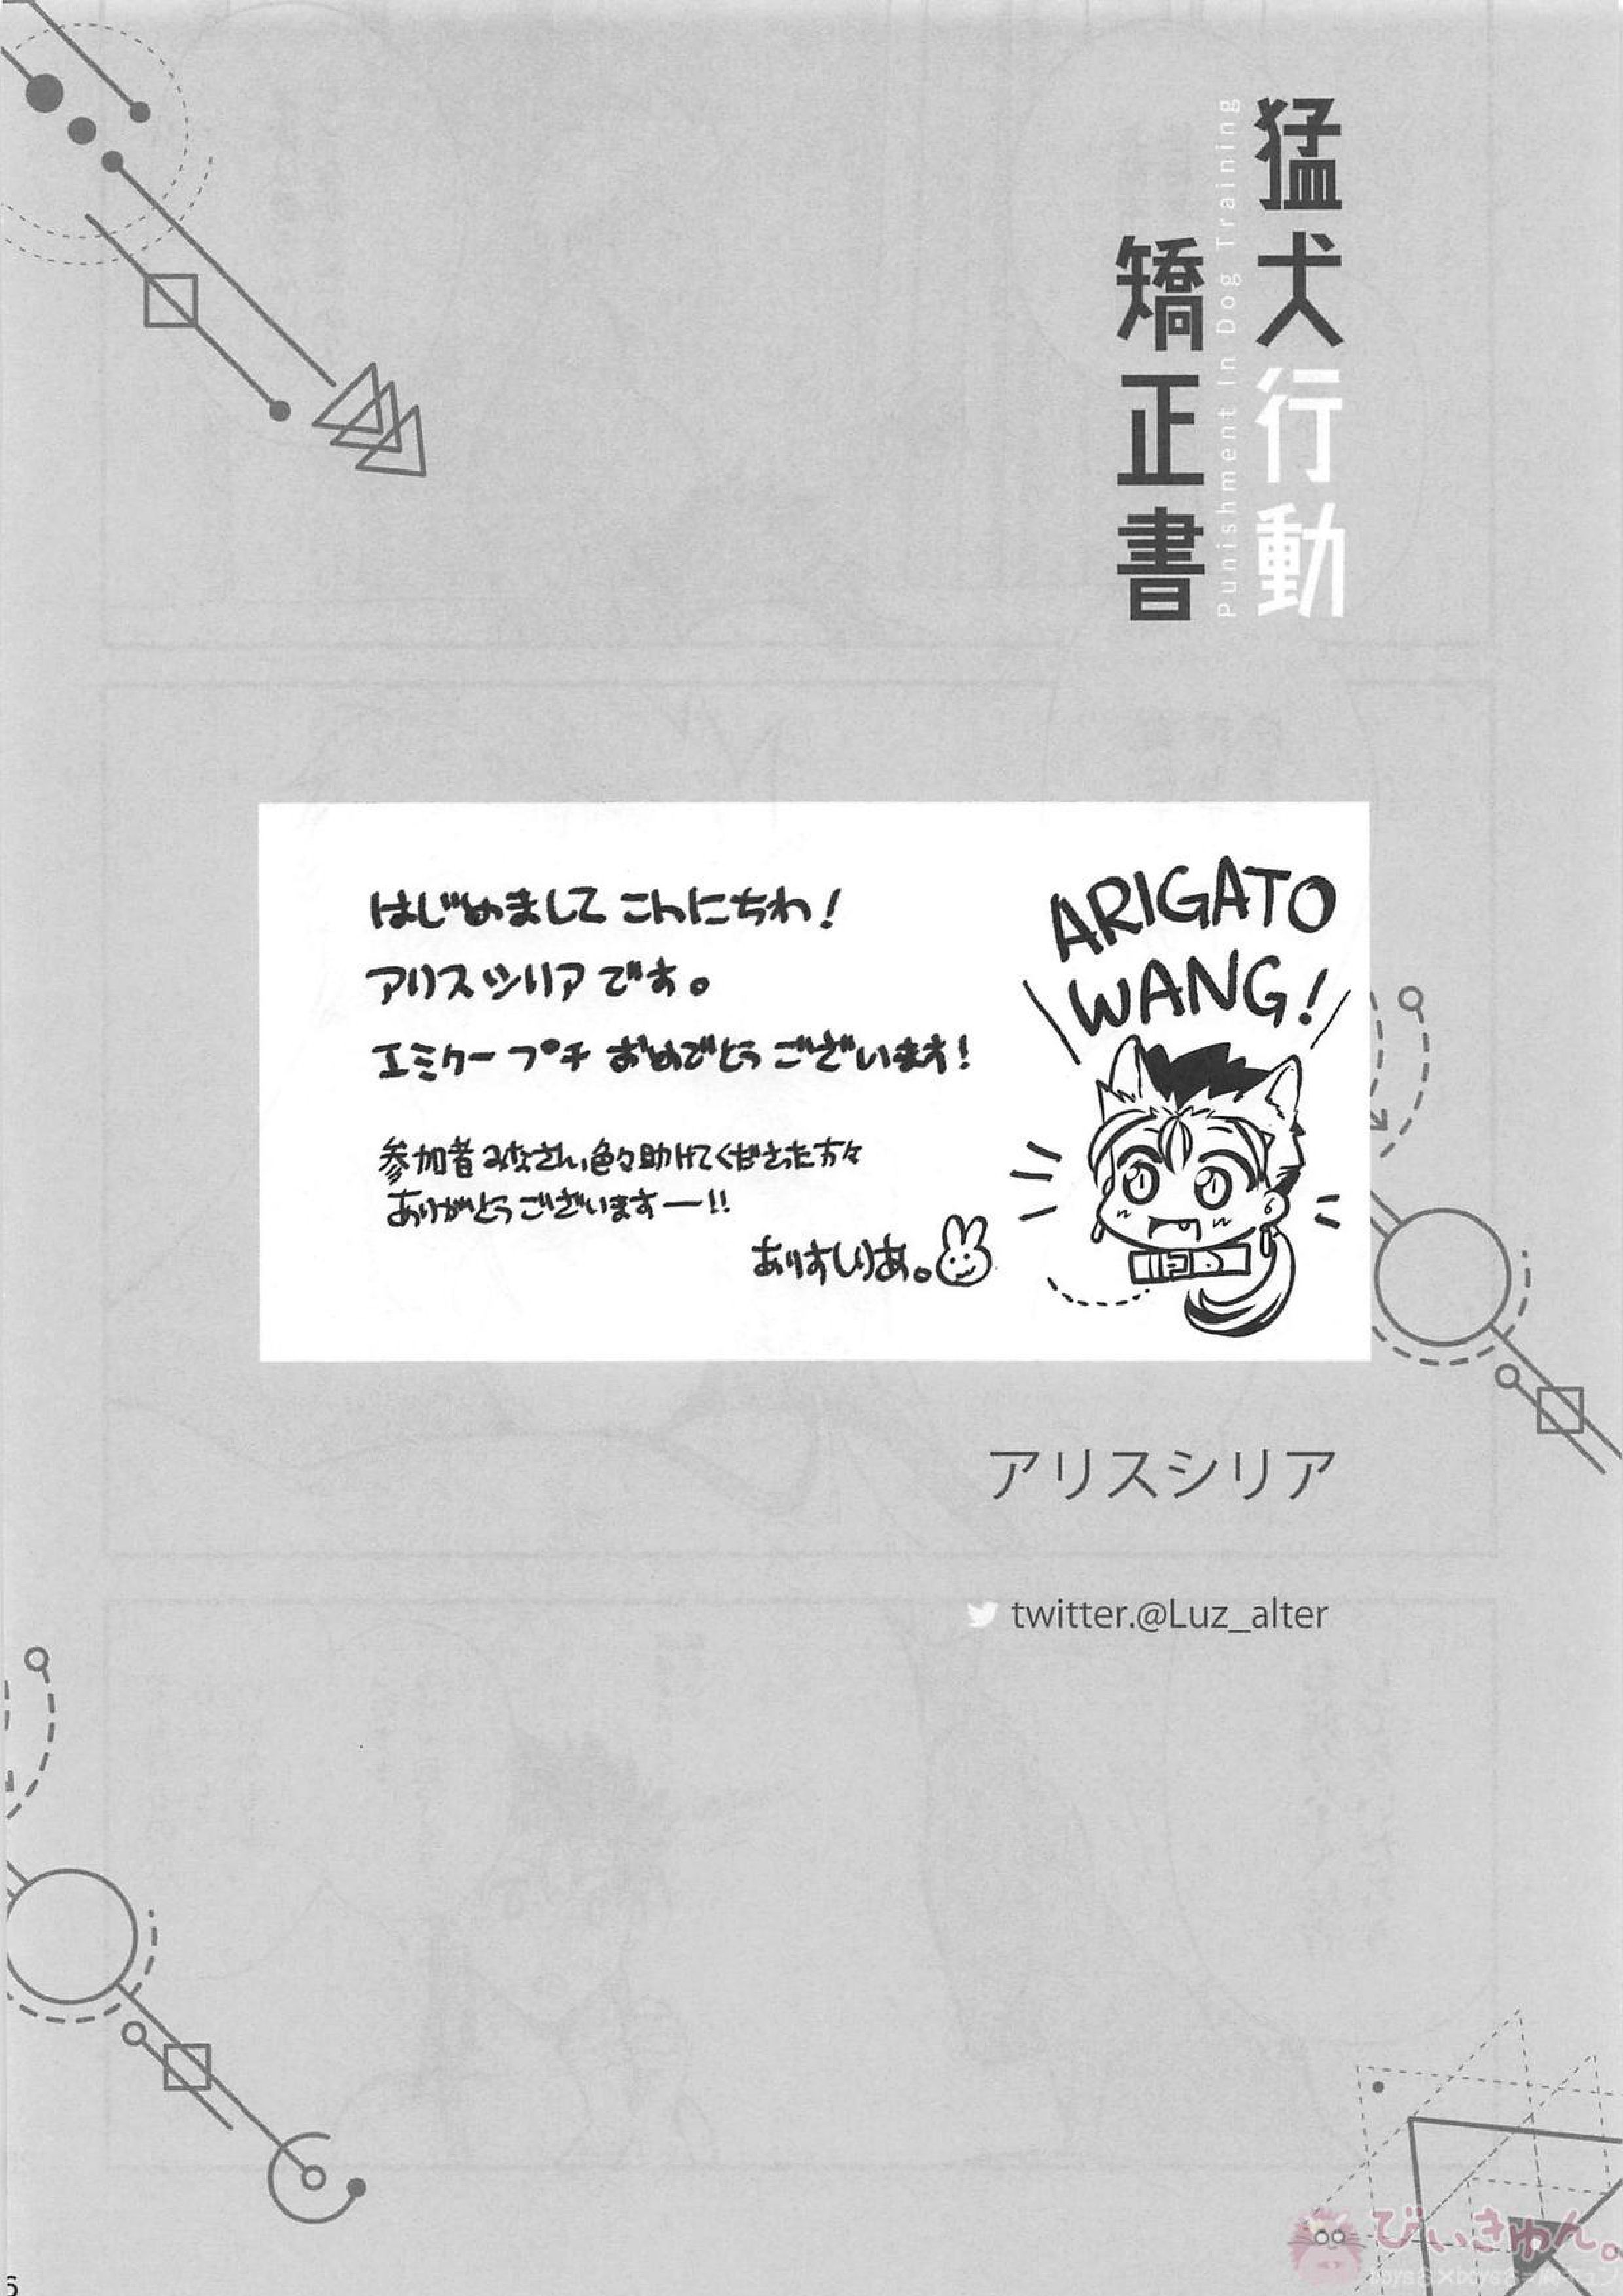 猛犬行動
Punishment in Dog Training
矯正書
はじめまして こんにちわ!
アリスシリアです。
エミクープチ おめでとうございます!
参加者みなさん、色々助けてくださった方々
ありがとうございますー!!
ありすしりあ。
ARIGATO
WANG!
アリスシリア
twitter.@Luz_alter
びぃきゅん。
6